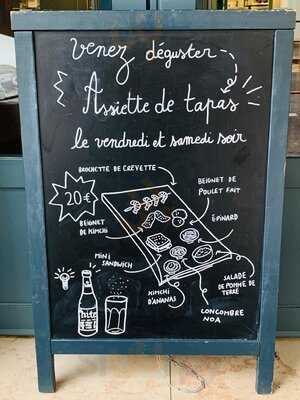 Venez déguster
Assiette de tapas
le vendredi et samedi soir
BROCHETTE DE CREVETTE
BEIGNET DE
POULET FAIT
20€
ÉPINARD
BEIGNET
DE KIMCHI
MINI
SANDWICH
SALADE
DE POMME DE
TERRE
KIMCHI
D'ANANAS
CONCOMBRE
NOA
hite